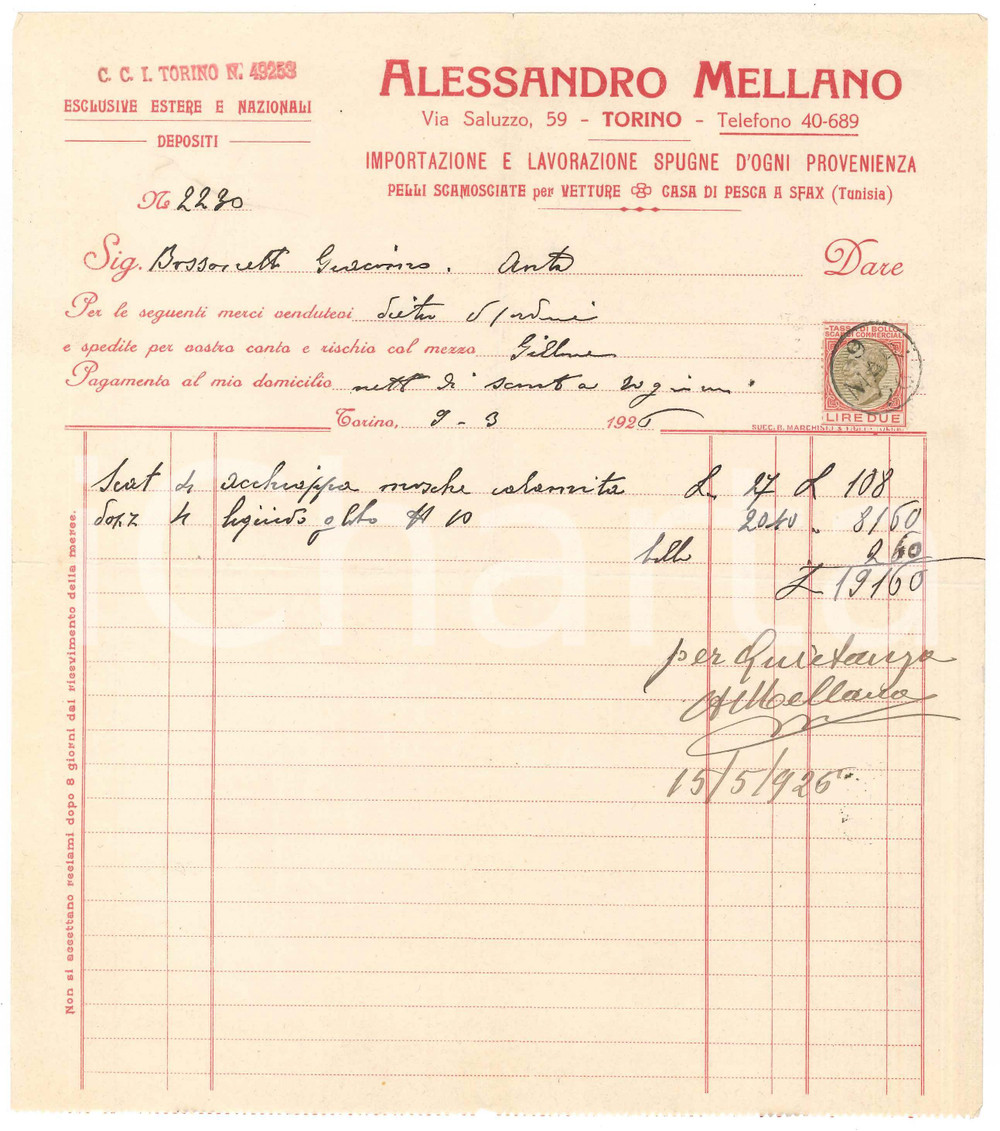 C. C. I. TORINO N. 49253
ESCLUSIVE ESTERE E NAZIONALI
DEPOSITI
ALESSANDRO MELLANO
Via Saluzzo, 59 - TORINO - Telefono 40-689
IMPORTAZIONE E LAVORAZIONE SPUGNE D'OGNI PROVENIENZA
PELLI SCAMOSCIATE per VETTURE CASA DI PESCA A SFAX (Tunisia)
No 2230
Sig. Giacomo. Dare
Per le seguenti merci vendutevi
e spedite per vostro conto e rischio col mezzo
Pagamento al mio domicilio
TASSA DI BOLLO
SCAMBI COMMERCIALI
LIRE DUE
Torino, 9 - 3 1926
SUCC. R. MARCHISIO &
Scat 4 acchiappa mosche calamita L. 27 L 108
dozz 4 liquido 2040 " 81 60
bollo 2 60
L 191 60
per Quietanza
AMellano
15/5/926
Non si accettano reclami dopo 8 giorni dal ricevimento della merce.
Charta